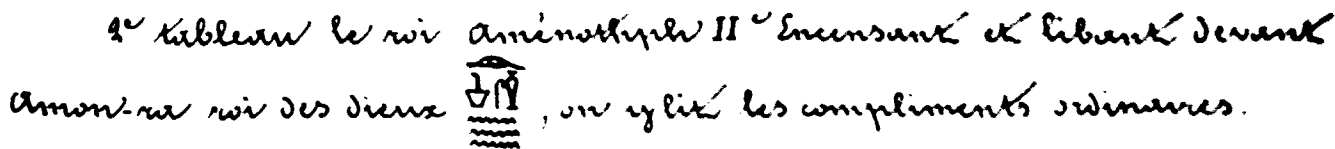 2e tableau le roi Aménothph IIe Encensant et libant devant
Amon-ra roi des dieux, on y lit les compliments ordinaires.